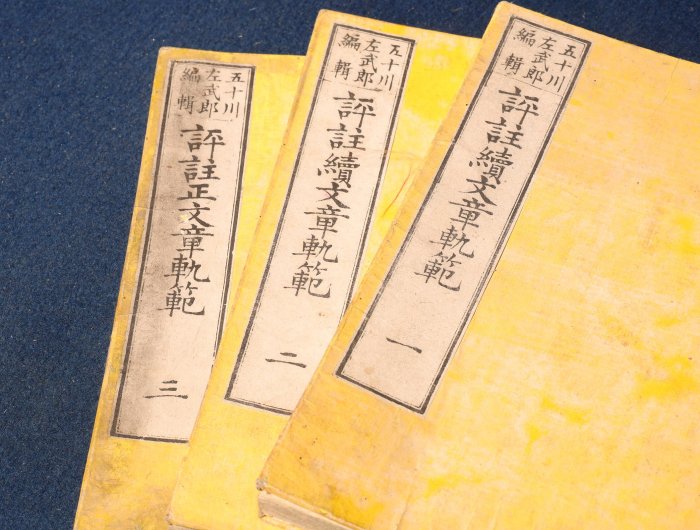 五十川
左武郎
編輯
評註續文章軌範
一
五十川
左武郎
編輯
評註續文章軌範
二
五十川
左武郎
編輯
評註正文章軌範
三